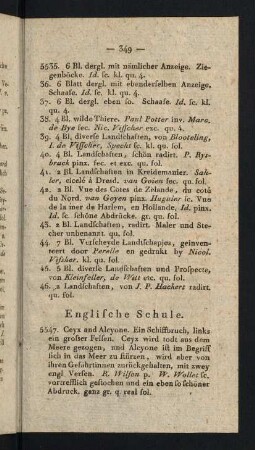 — 349 —
5535. 6 Bl. dergl. mit nämlicher Anzeige. Zie-
genböcke. Id. sc. kl. qu. 4.
36. 6 Blatt dergl. mit ebenderselben Anzeige.
Schaafe. Id. sc. kl. qu. 4.
37. 6 Bl. dergl. eben so. Schaafe. Id. sc. kl.
qu. 4.
38. 4 Bl. wilde Thiere. Paul Potter inv. Marc.
de Bye fec. Nic. Visscher exc. qu. 4.
39. 4 Bl. diverse Landschaften, von Blooteling,
I. de Visscher, Specht sc. kl. qu. fol.
40. 4 Bl. Landschaften, schön radirt. P. Rys-
brack pinx. et fec. gr. qu. fol.
41. 2 Bl. Landschaften in Kreidemanier. Sah-
ler, cicelé à Dresd. van Goien fec. qu. fol.
42. 2 Bl. Vue des Cotes de Zelande, du coté
du Nord. van Goyen pinx. Huguier sc. Vue
de la mer de Harlem, en Hollande, Id. pinx.
Id. sc. schöne Abdrücke. gr. qu. fol.
43. 2 Bl. Landschaften, radirt. Maler und Ste-
cher unbenannt. qu. fol.
44. 7 Bl. Verscheyde Landschepies, geinven-
teert door Perelle en gedrukt by Nicol.
Visscher. kl. qu. fol.
45. 5 Bl. diverse Landschaften und Prospecte,
von Kleinseller, de Witt exc. qu. fol.
46. 2 Landschaften, von J. P. Hackert radirt.
qu. fol.
Englische Schule.
5547. Ceyx and Alcyone. Ein Schiffbruch, links
ein großer Felsen. Ceyx wird todt aus dem
Meere gezogen, und Alcyone ist im Begriff
sich in das Meer zu stürzen, wird aber von
ihren Gefährtinnen zurückgehalten, mit zwey
engl. Versen. R. Wilson p. W. Wollet sc.
vortrefflich gestochen und ein eben so schöner
Abdruck. ganz gr. q real fol.